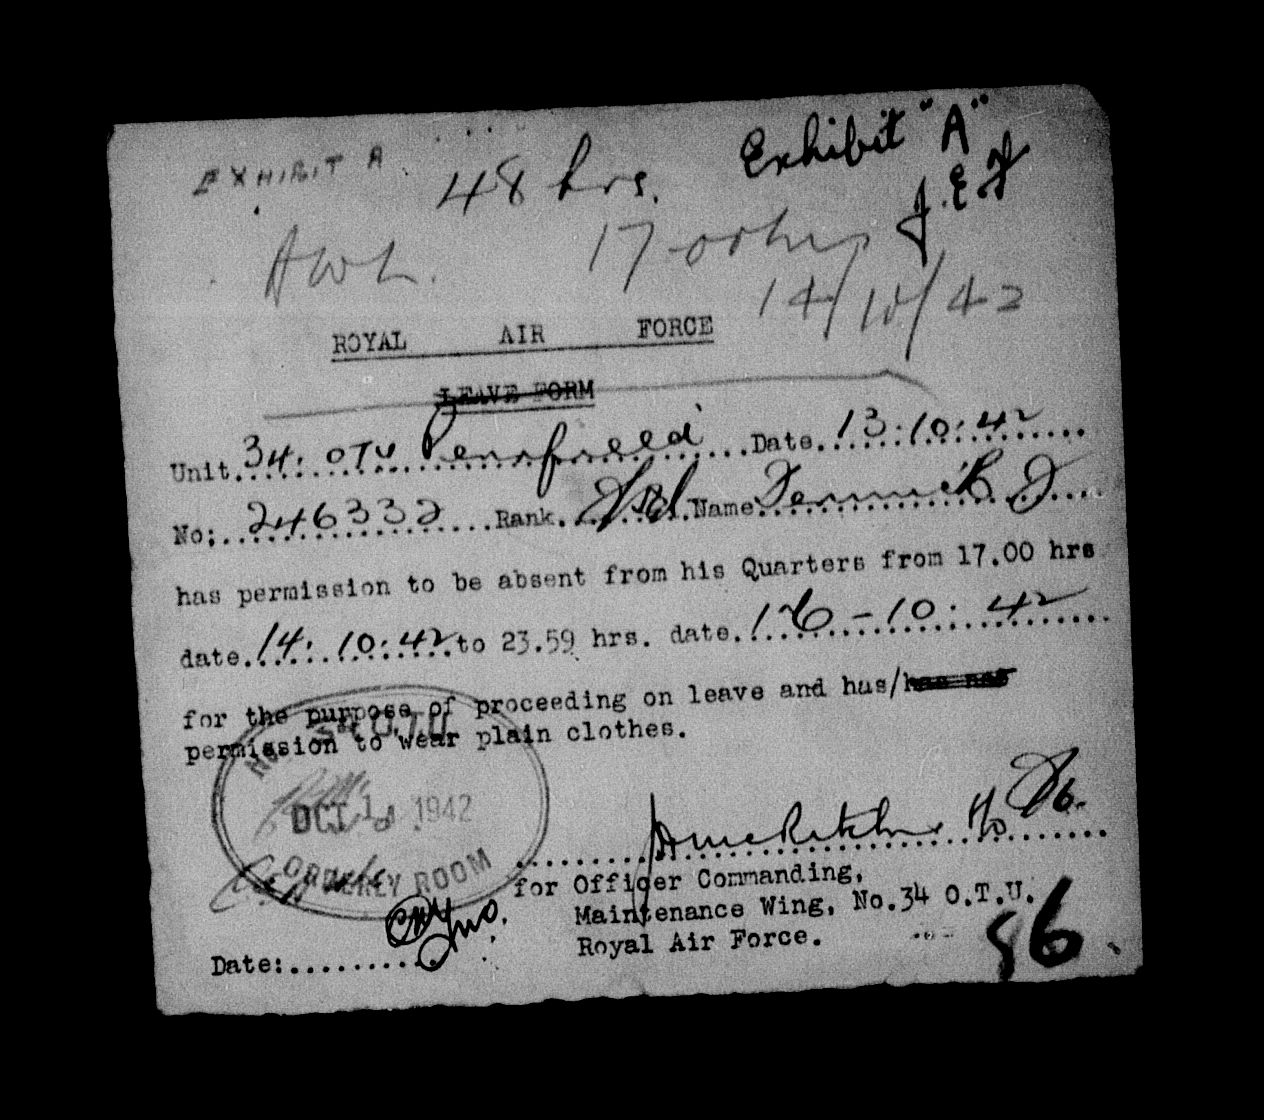 EXHIBIT A
48 hrs.
Exhibit "A"
J.E.F
AWL.
17-00 hrs
14/10/42
ROYAL AIR FORCE
LEAVE FORM
Unit. 34. OTU Pennfield Date. 13.10.42
No: 246332 Rank. Name Fenwick J
has permission to be absent from his Quarters from 17.00 hrs
date. 14. 10. 42 to 23.59 hrs. date. 16-10. 42
for the purpose of proceeding on leave and has/has not
permission to wear plain clothes.
No. 34 O.T.U.
OCT 1 1942
ORDERLY ROOM
for Officer Commanding,
Maintenance Wing, No.34 O.T.U.
Royal Air Force.
Date:
86